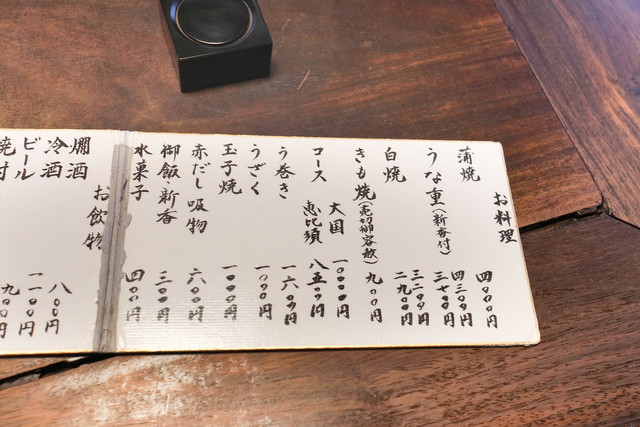 お料理
蒲焼 四〇〇〇円
うな重(新香付) 四三〇〇円
三七〇〇円
三二〇〇円
白焼 二九〇〇円
きも焼(売切御容赦) 九〇〇円
コース 大国 一〇〇〇〇円
恵比須 八五〇〇円
う巻き 一六〇〇円
うざく 一〇〇〇円
玉子焼 一〇〇〇円
赤だし 吸物 六〇〇円
御飯 新香 三〇〇円
水菓子 四〇〇円
お飲物
燗酒 八〇〇円
冷酒 一一〇〇円
ビール 九〇〇円